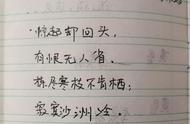 惊起却回头,
有恨无人省。
拣尽寒枝不肯栖,
寂寞沙洲冷。